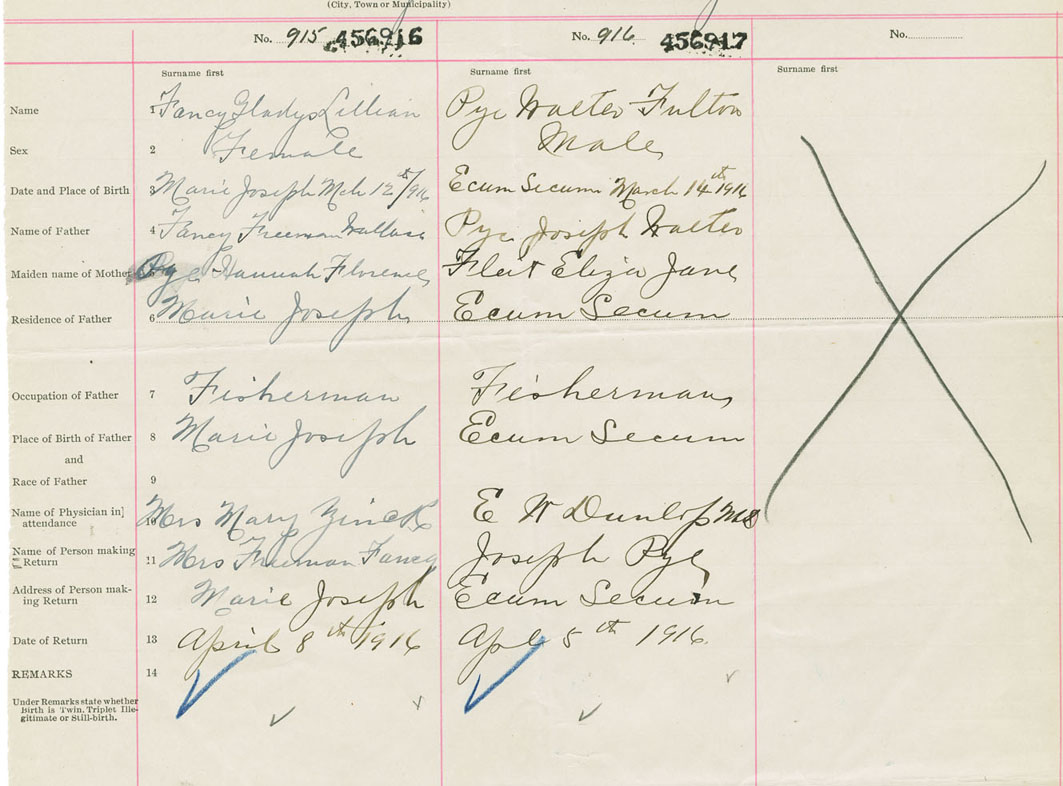 (City, Town or Municipality)
No. 915 456916 No. 916 456917 No.
Surname first Surname first Surname first
Name 1 Fancy Gladys Lillian Pye Walter Fulton
Sex 2 Female Male
Date and Place of Birth 3 Marie Joseph Mch 12th/916 Ecum Secum March 14th 1916
Name of Father 4 Fancy Freeman Wallace Pye Joseph Walter
Maiden name of Mother Pye Hannah Florence Fleet Eliza Jane
Residence of Father 6 Marie Joseph Ecum Secum
Occupation of Father 7 Fisherman Fisherman
Place of Birth of Father 8 Marie Joseph Ecum Secum
and
Race of Father 9
Name of Physician in } attendance 10 Mrs Mary Zinck E W Dunlop MD
Name of Person making Return 11 Mrs Freeman Fancy Joseph Pye
Address of Person mak-ing Return 12 Marie Joseph Ecum Secum
Date of Return 13 April 8th 1916 Apl 5th 1916.
REMARKS 14
Under Remarks state whether
Birth is Twin. Triplet Ille-
gitimate or Still-birth.